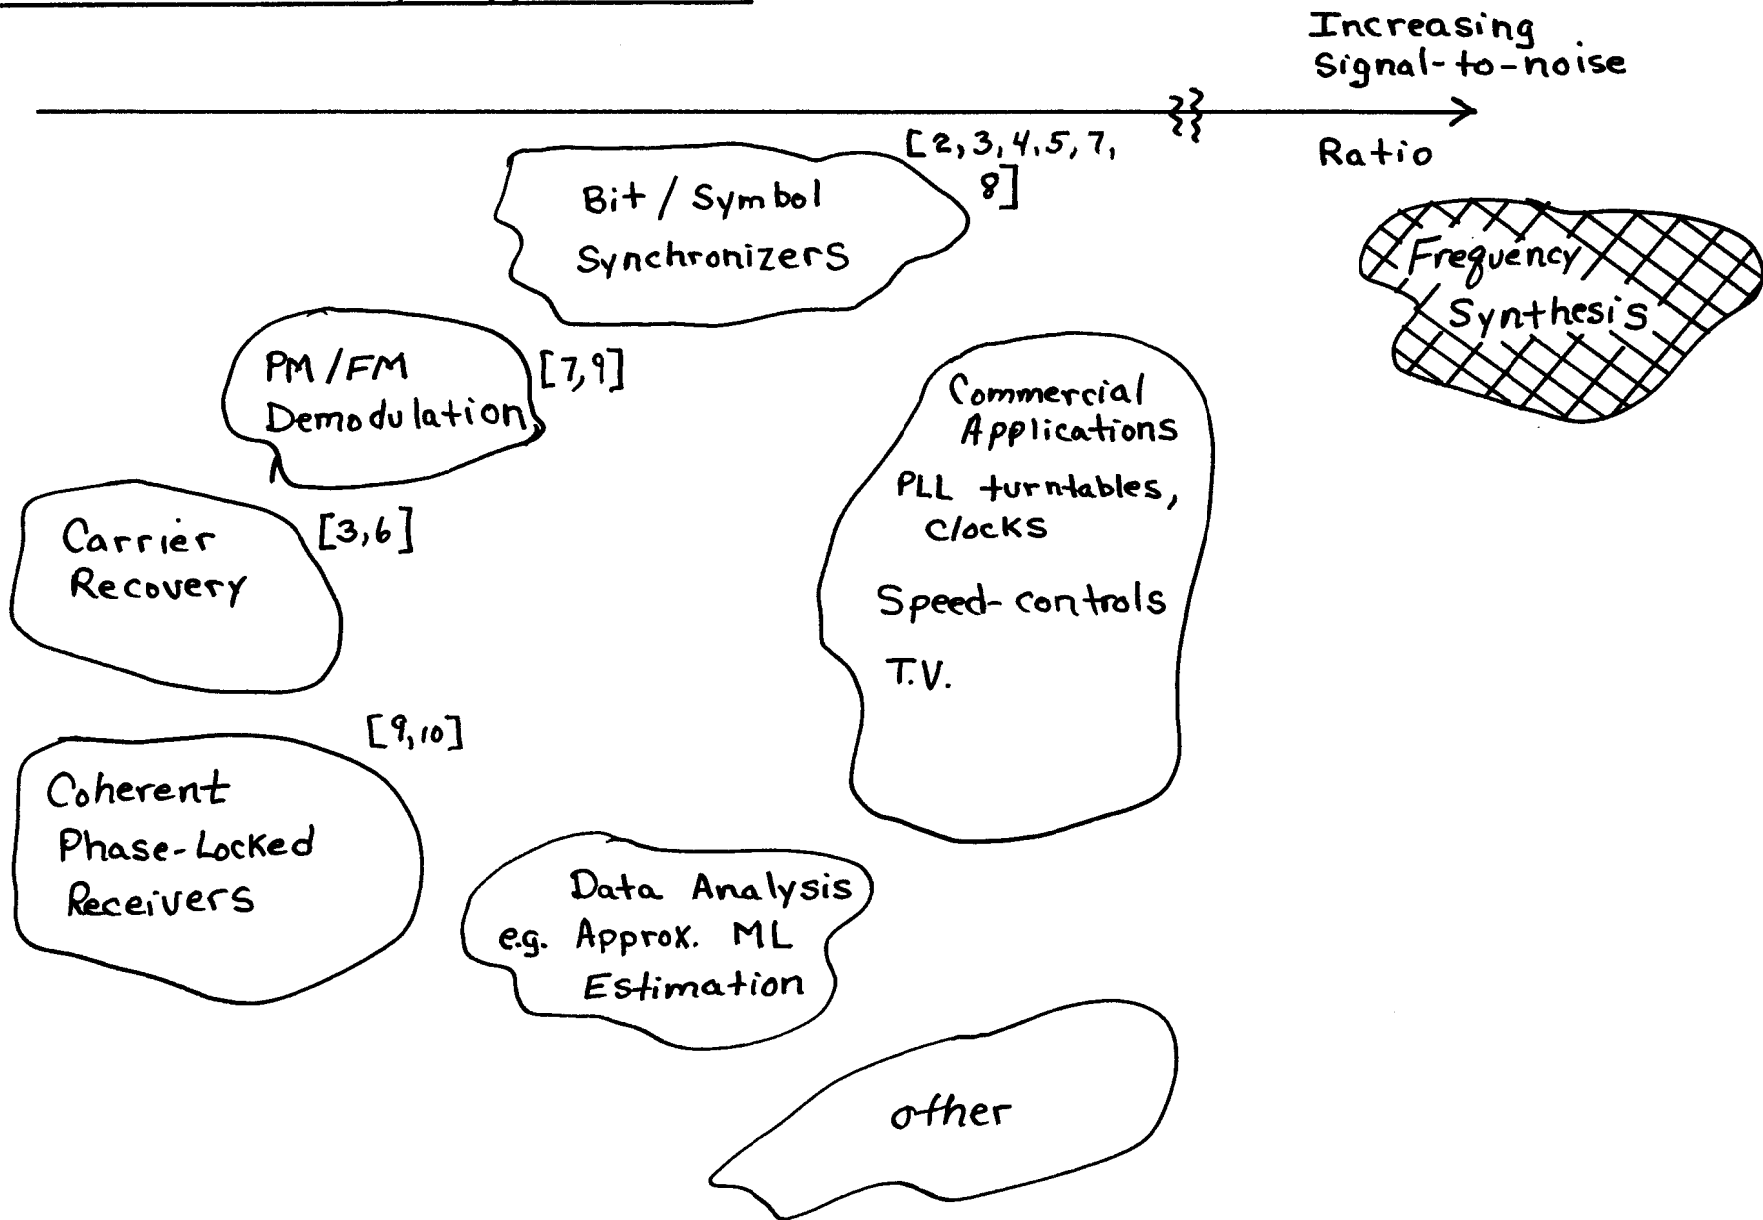 Increasing
Signal-to-noise
Ratio
[2, 3, 4, 5, 7,
8]
Bit / Symbol
Synchronizers
Frequency
Synthesis
PM / FM
Demodulation
[7, 9]
Commercial
Applications
PLL turntables,
Clocks
Speed-controls
T.V.
Carrier
Recovery
[3, 6]
[9, 10]
Coherent
Phase-Locked
Receivers
Data Analysis
e.g. Approx. ML
Estimation
other